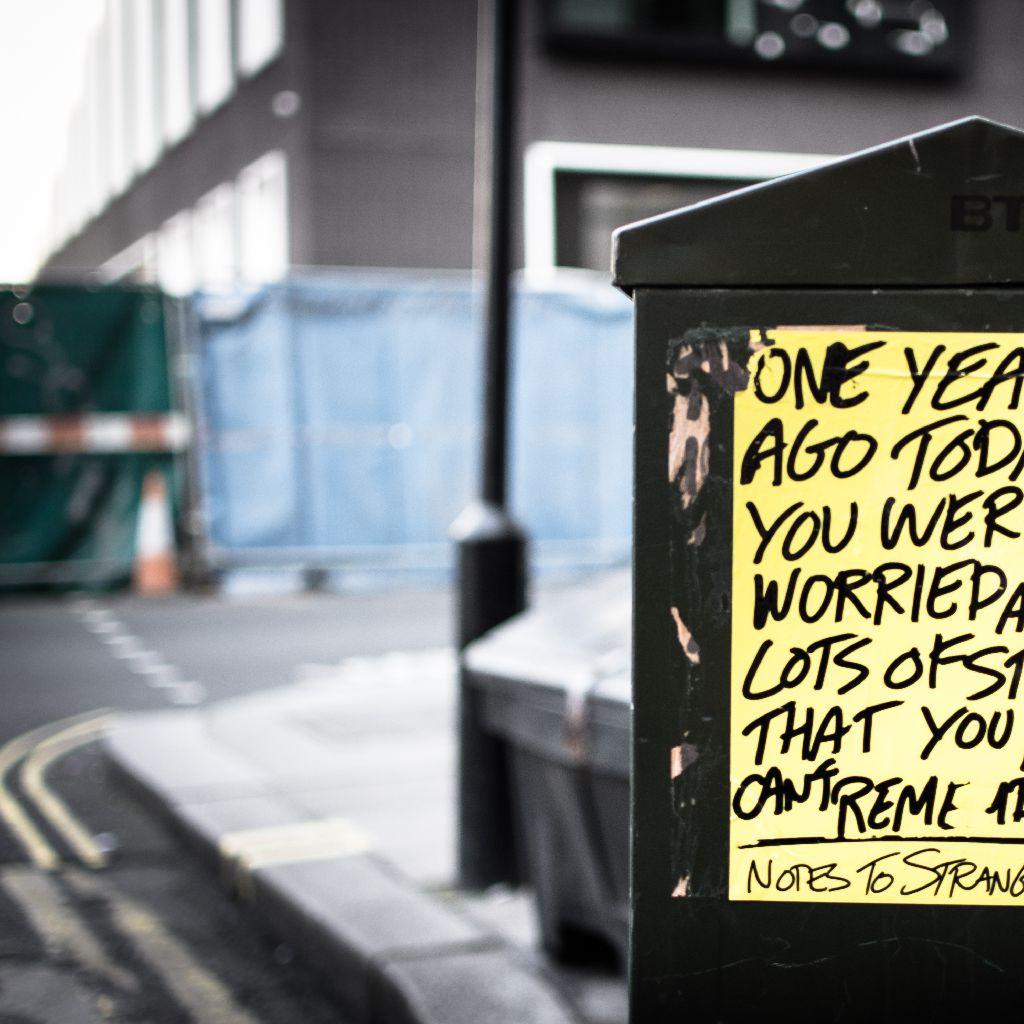 BT
ONE YEA
AGO TODA
YOU WER
WORRIED A
LOTS OF ST
THAT YOU
CAN'T REME
NOTES TO STRANG